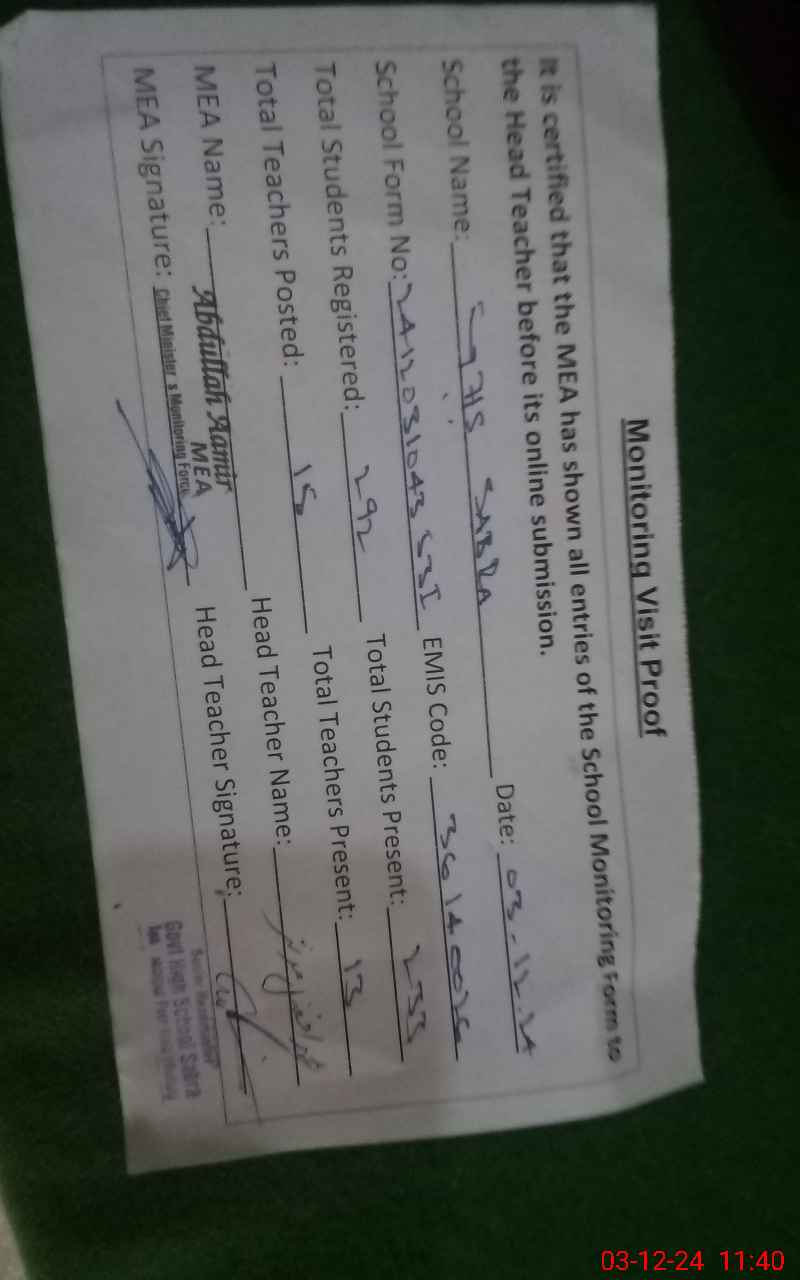 Monitoring Visit Proof
It is certified that the MEA has shown all entries of the School Monitoring Form to
the Head Teacher before its online submission.
School Name: GHS SABRA Date: 03-12-24
School Form No: EMIS Code:
Total Students Registered: 292 Total Students Present: 233
Total Teachers Posted: 15 Total Teachers Present: 13
MEA Name: Abdullah Aamir Head Teacher Name:
MEA
MEA Signature: Chief Minister's Monitoring Force Head Teacher Signature:
Govt High School Sabra
03-12-24 11:40